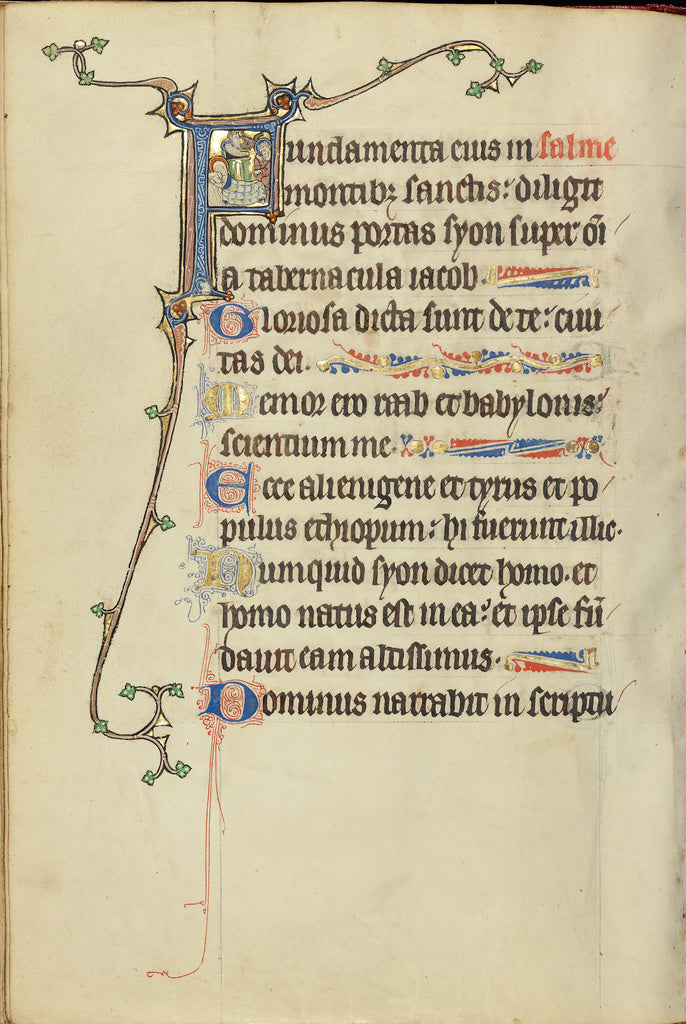 Fundamenta eius in salme
montibꝫ sanctis: diligit
dominus portas syon super oī
a tabernacula iacob.
Gloriosa dicta sunt de te: ciui
tas dei.
Memor ero raab et babylonis:
scientium me.
Ecce alienigene et tyrus et po
pulus ethiopum: hi fuerunt illic.
Numquid syon dicet homo. et
homo natus est in ea: et ipse fū
dauit eam altissimus.
Dominus narrabit in scriptu